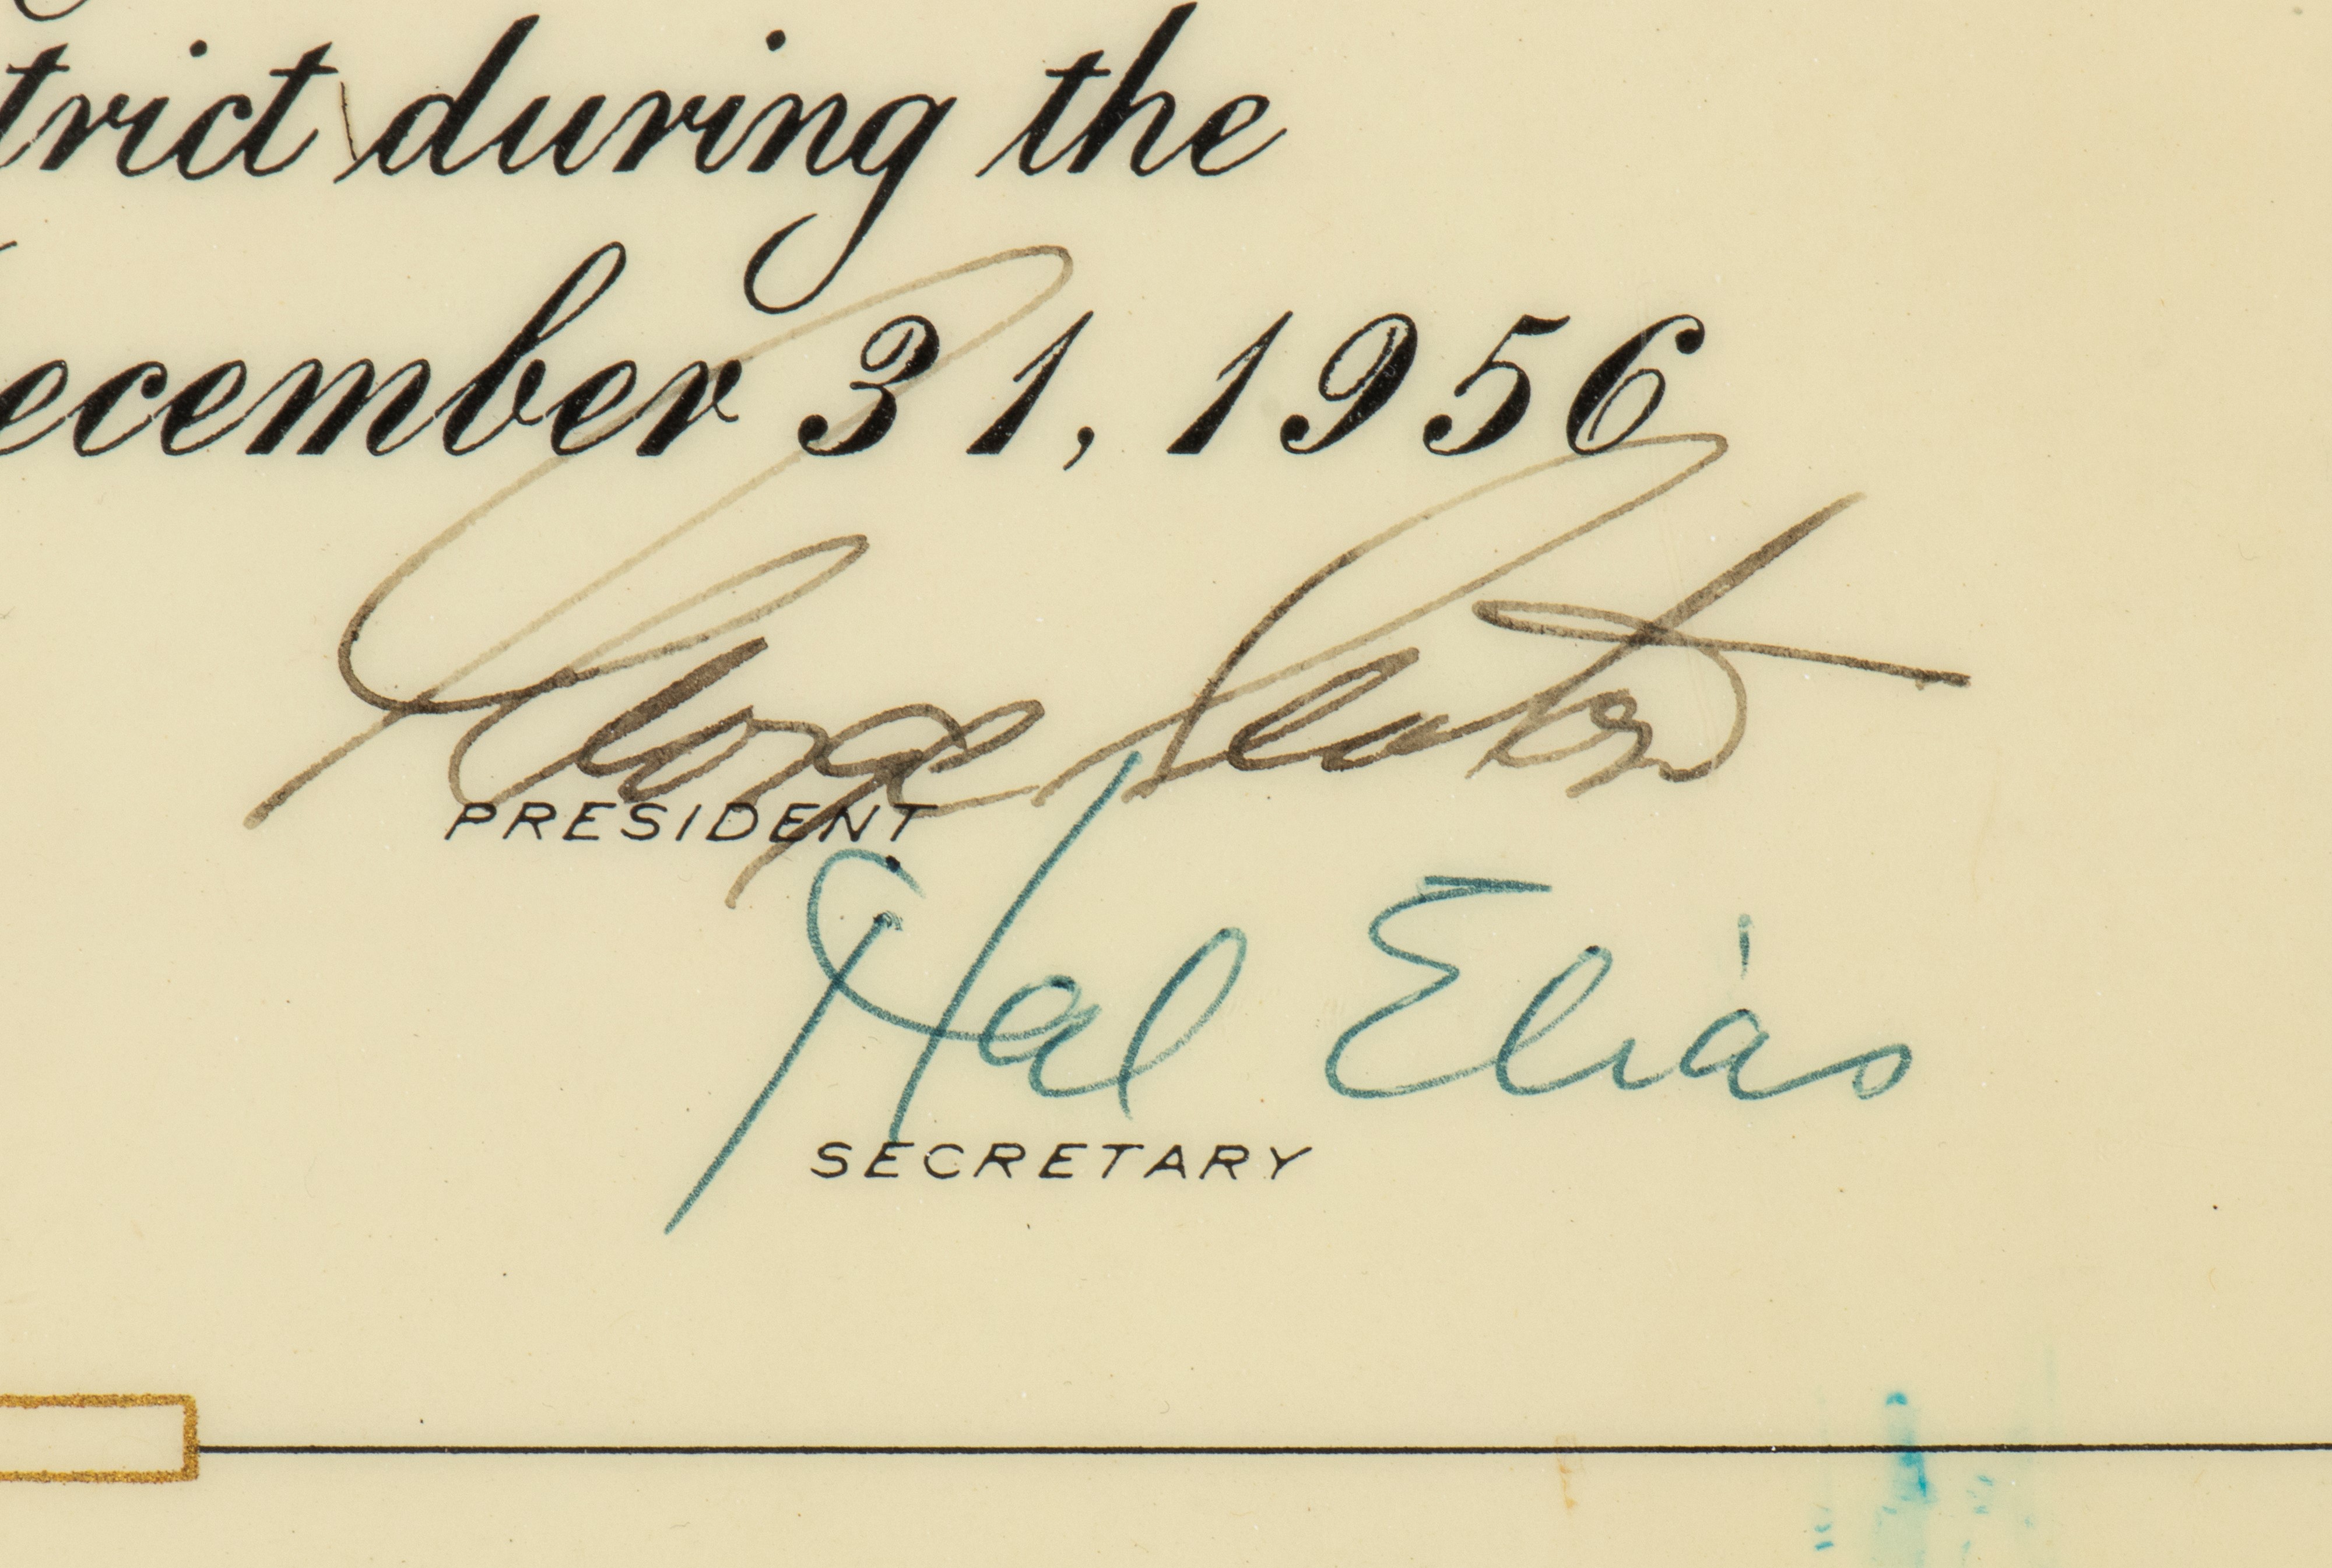 trict during the
ecember 31, 1956
George Seaton
PRESIDENT
Hal Elias
SECRETARY